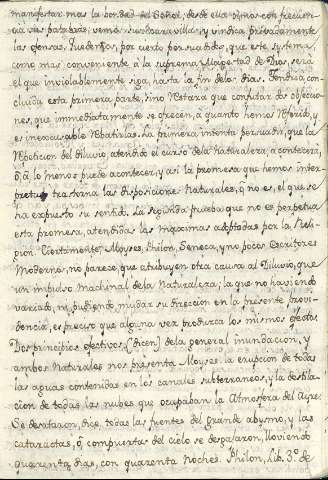 manifestar mas la bondad del Señor; desde ella oimos con frecuen
cia sus palabras; vemos sus maravillas; y vindica privadamente
las ofensas. Quedemos, por cierto persuadidos, que este systema,
como mas conveniente à la suprema Magestad de Dios, será
el que inviolablemente siga, hasta la fin de los dias. Tendria con
cluida esta primera parte, sino restara que confutar dos objeccio
nes, que immediatamente se ofrecen, a quanto hemos referido, y
es inexcusable rebatirlas. La primera intenta persuadir, que la
repeticion del diluvio, atendido el curso de la Naturaleza, acontecerà,
ò à lo menos puede acontecer, y asi la promesa que hemos inter
pretado trastorna las disposiciones Naturales, q̃ no es, el que se
ha expuesto su sentido. La segunda prueba que no es perpetua
esta promesa, atendidas las maximas adoptadas por la Reli
gion. Ciertamente, Moyses, Philon, Seneca, y no pocos Escritores
Modernos, no parece, que atribuyen otra causa al Diluvio, que
un impulso machinal de la Naturaleza; la que no haviendo
variado, ni pudiendo mudar su direccion en la presente provi
dencia, es preciso que alguna vez produzca los mismos efectos.
Dos principios efectivos (dicen) de la general inundacion, y
ambos Naturales nos presenta Moyses: la erupcion de todas
las aguas contenidas en los canales subterraneos, y la destila
cion de todas las nubes que ocupaban la Atmosfera del Ayre.
Se desataron, dice, todas las fuentes del grande abysmo, y las
cataractas, q̃ compuertas del cielo se desgajaron, lloviendo
quarenta dias, con quarenta noches. Philon, Lib. 3º de